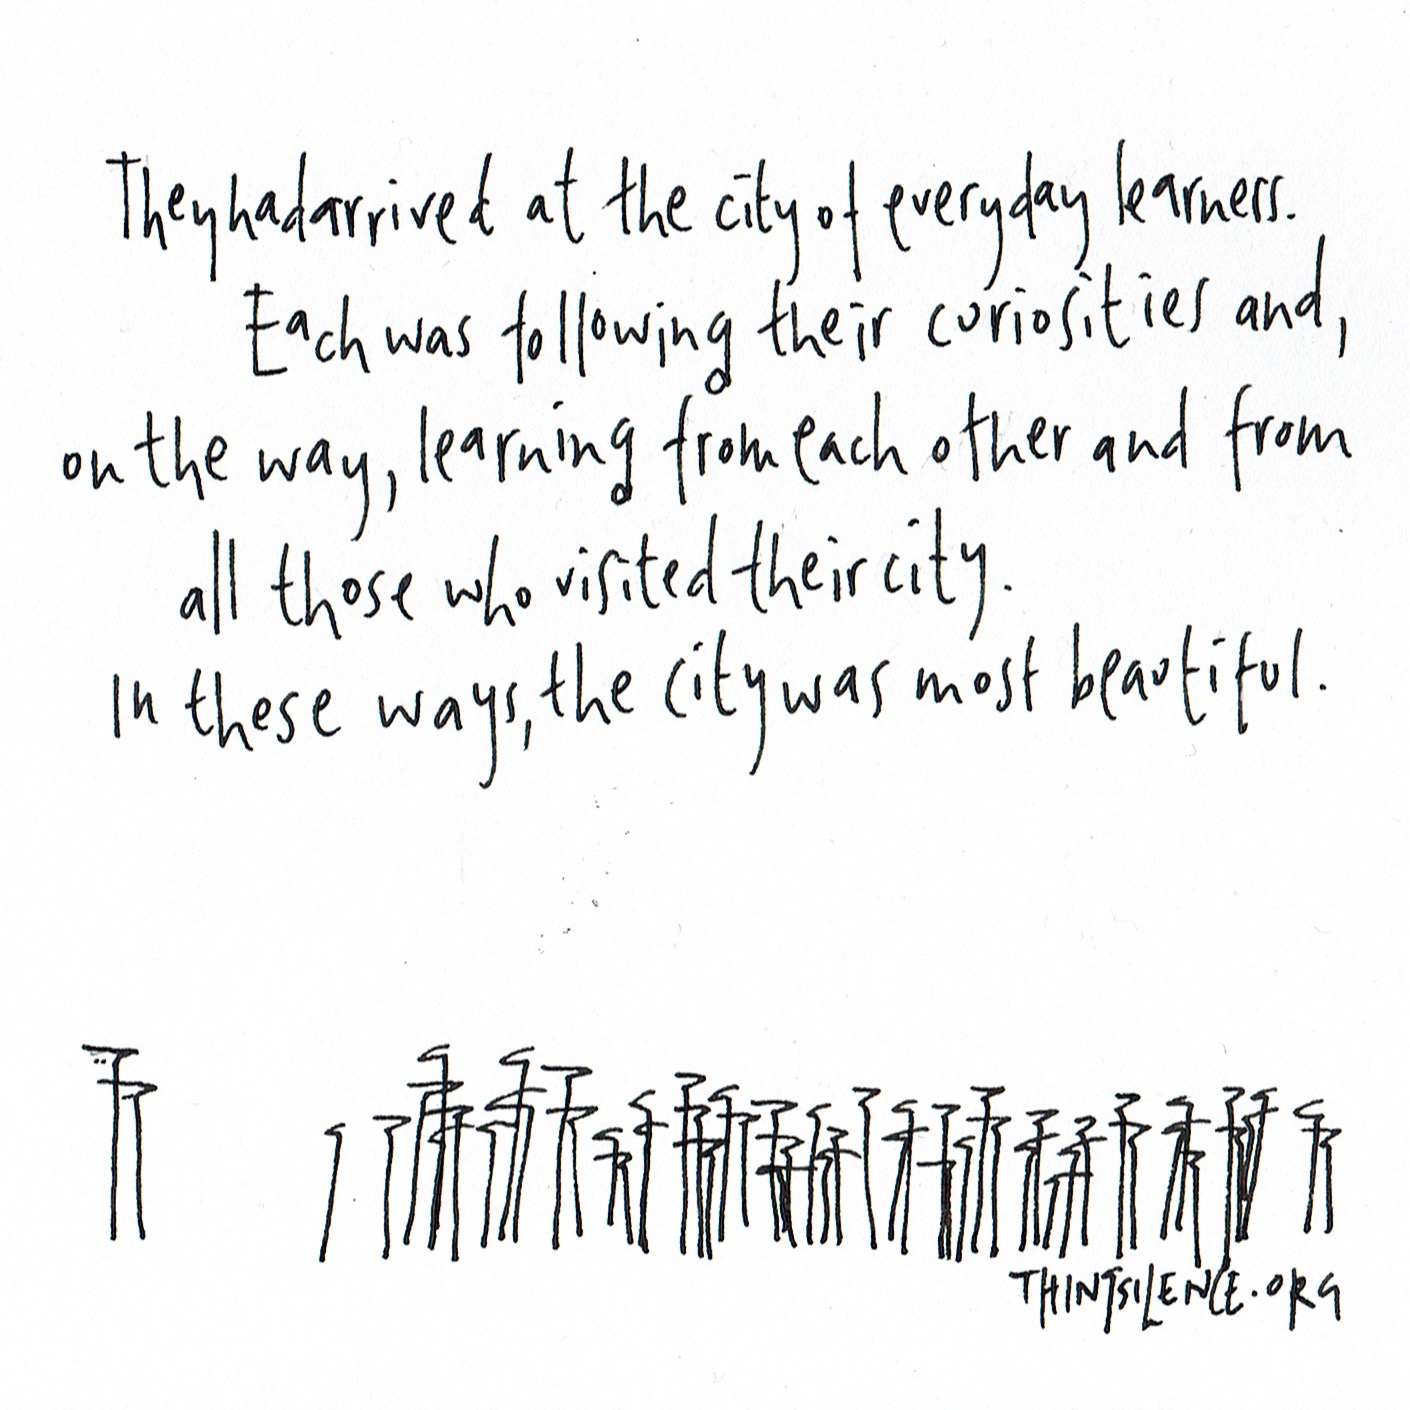 They had arrived at the city of everyday learners.
Each was following their curiosities and,
on the way, learning from each other and from
all those who visited their city.
In these ways, the city was most beautiful.
THINSILENCE.ORG